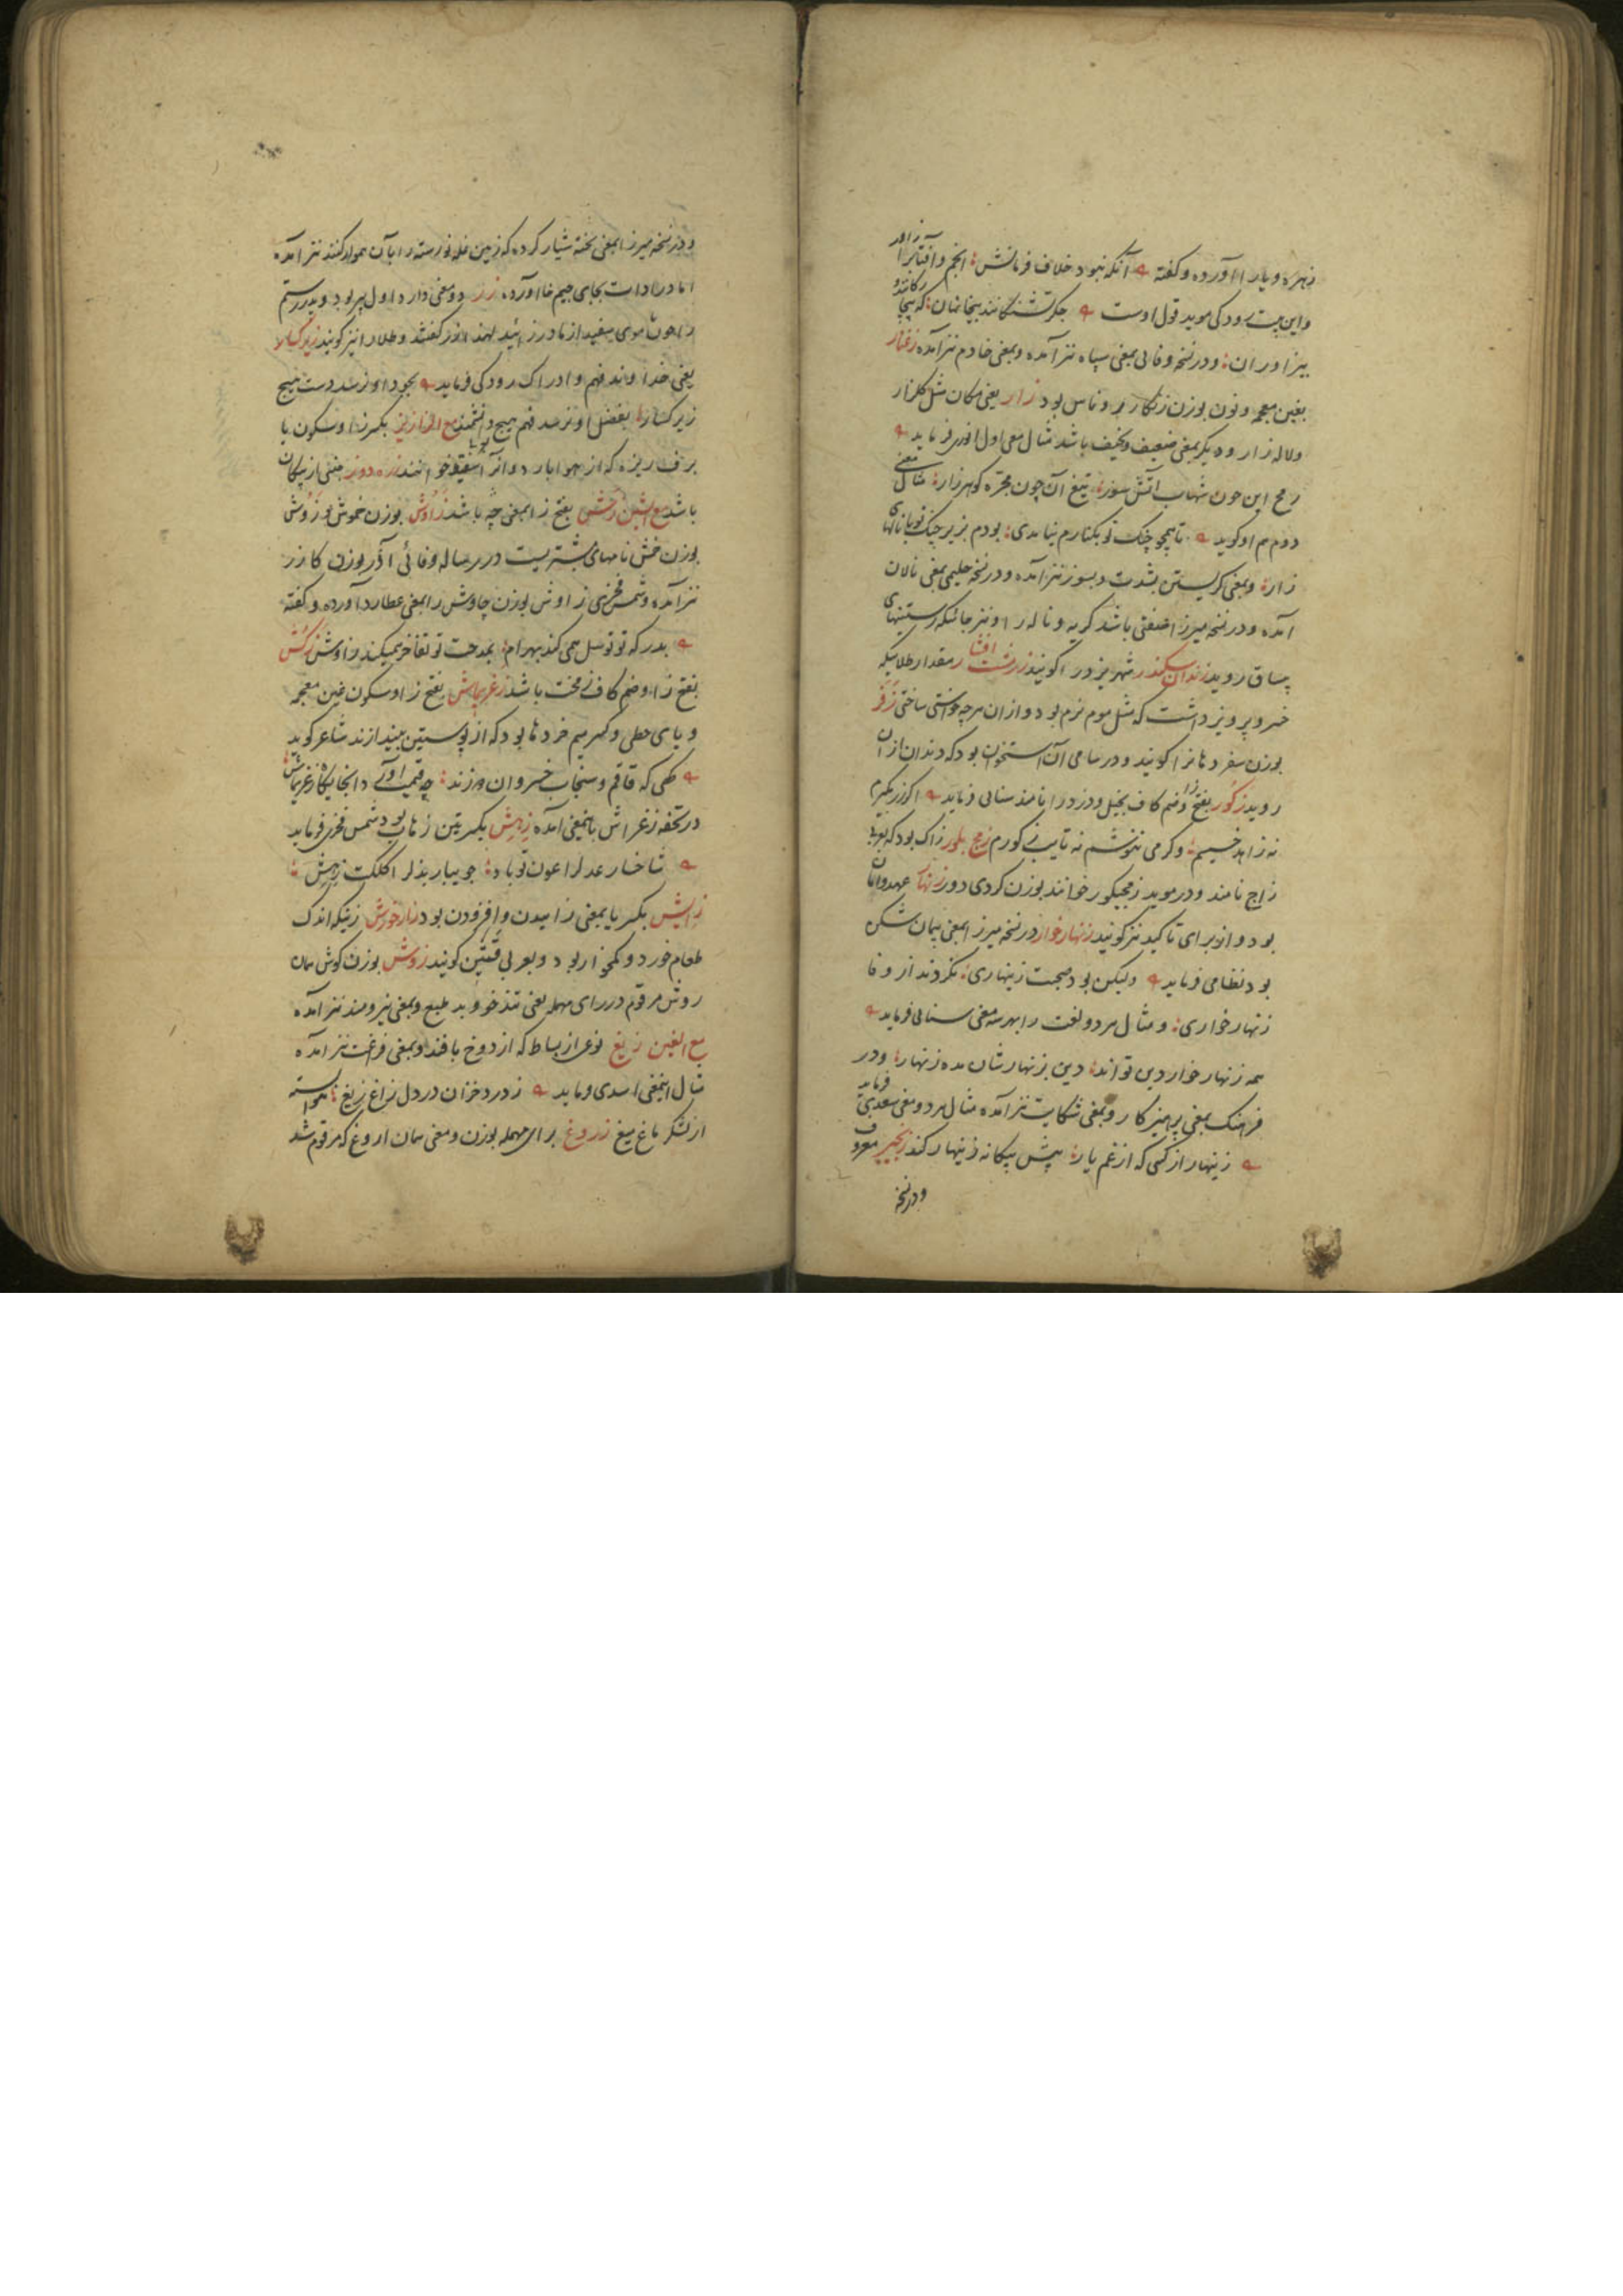 زهره و یار را آورده و گفته آنکه نبود خلاف فرمانش انجم و آفتاب را زاور
و این بیت رودکی موید قول اوست جگر تشنگانند بیچارگان که بیچا رگانند و
بیزاوران و در نسخه وفائی بمعنی سیاه نیز آمده و بمعنی خادم نیز آمده زغنار
بغین معجمه و نون بوزن زنگار روناس بود زار یعنی مکان مثل گلزار
و لاله زار و دیگر بمعنی ضعیف و نحیف باشد مثال معنی اول انوری فرماید
رمح این چون شهاب آتش سوز تیغ آن چون مجره گوهرزار مثال معنی
دوم هم او گوید تا همچو چنگ تو بکنارم نیامدی بودم بزیر چنگ تو با نالهای
زار و بمعنی گریستن بشدت و بسوز نیز آمده و در نسخه حلیمی بمعنی نالان
آمده و در نسخه میرزا ضعفی باشد گریه و ناله را و نیز جائیکه رستنیهای
بیساق روید زندان سکندر شهر یزد را گویند زر مشت افشار مقدار طلائیکه
خسرو پرویز داشت که مثل موم نرم بود و از ان هر چه خواستی ساختی زفر
بوزن سفر دهانرا گویند و در سامی آن استخوان بود که دندان از ان
روید زکور بفتح زا و ضم کاف بخیل و دزد را نامند سنائی فرماید
نه زاهد خسیسم و گر می ننوشم نه تایب زکورم زمج بلور زاک بود که بعربی
زاج نامند و در موید زمجیکور خوانند بوزن کردی دور زنهار عهد و امان
بود و انو برای تاکید نیز گویند زنهار خوار در نسخه میرزا بمعنی پیمان شکن
بود نظامی فرماید ولیکن بود صحبت زینهاری نکردند از وفا
زنهار خواری و مثال هر دو لغت را بهر سه معنی سنائی فرماید
همه زنهار خوار دین تو اند دین بزنهارشان مده زنهار و در
فرهنگ بمعنی پرهیزکار و بمعنی شکایت نیز آمده مثال هر دو معنی سعدی فرماید
زینهار از کسی که از غم یار پیش بیگانه زینهار کند زنجیر معروف
و در نسخه
و در نسخه میرزا بمعنی تخته شیار کرده که زمین غله نو رسته را بآن هموار کنند نیز آمده
اما در ادات بجای جیم خا آورده زر دو معنی دارد اول پیر بود و پدر رستم
را چون موی سفید از مادر زائید لهذا زر گفتند و طلا را نیز گویند زیرکسار
یعنی خداوند فهم و ادراک رودکی فرماید بجود او نرسد دست هیچ
زیرکسار بفضل او نرسد فهم هیچ دانشمند مع الزا زیز بکسر زا و سکون یا
برف ریزه که از هوا بارد و انرا خوانند زره دوز جنسی از پیکان
باشد مع الشین زاوش بوزن خموش و زوش
بوزن خمش نامهای مشتریست در رساله وفائی آذر بوزن کازر
نیز آمده و شمس فخری زاوش بوزن چاوش را بمعنی عطارد آورده و گفته
بدر که تو توسل همی کند بهرام بمدحت تو تفاخر همیکند زاوش زکش
بفتح زا و ضم کاف مخت باشد زغریماش بفتح زا و سکون غین معجمه
و یای حطی و کسر میم خردها بود که از پوستین بیندازند شاعر گوید
کهی که قاقم و سنجاب خسروان دوزند چه قیمت آورد انجایگاه زغریماش
در تحفه زغراش باینمعنی آمده زهش بکسرتین زهاب بود شمس فخری فرماید
شاخسار عدل را عون تو باد جویبار بذل را کلکت زهش
زایش بکسر یا بمعنی زاییدن و افزودن بود زار خورش زنیکه اندک
طعام خورد و کمخوار بود و بعربی قتین گویند زوش بوزن گوش همان
روش مرقوم در رای مهمله یعنی تندخو و بد طبع و بمعنی نیرومند نیز آمده
مع الغین زیغ نوعی از بساط که از دوخ بافند و بمعنی فرغت نیز آمده
مثال اینمعنی اسدی فرماید ز درد خزان در دل زاغ زیغ هوا بسته
از لشکر ماغ میغ زروغ برای مهمله بوزن و معنی همان اروغ که مرقوم شد